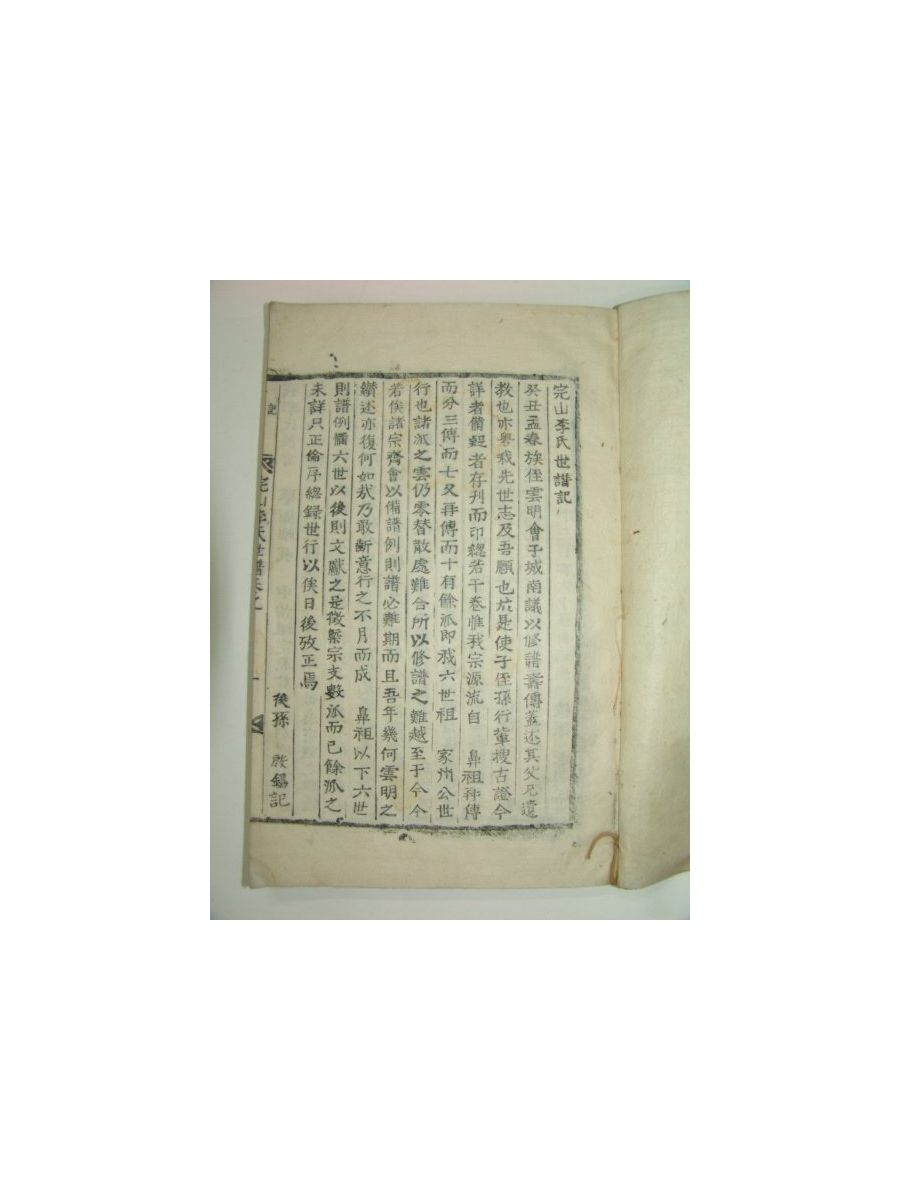 完山李氏世譜記
癸丑孟春族侄雲明會于城南議以修譜壽傳蓋述其父兄遺
教也亦粤我先世志及吾願也於是使子侄孫行軰搜古證今
詳者備疑者存刋而印總若干卷惟我宗源流自 鼻祖再傳
而分三傳而七又再傳而十有餘派即我六世祖 家州公世
行也諸派之雲仍零替散處難合所以修譜之難越至于今今
若俟諸宗齊會以備譜例則譜必難期而且吾年幾何雲明之
纉述亦復何如哉乃敢斷意行之不月而成 鼻祖以下六世
則譜例備六世以後則文獻之是徵槩宗支數派而已餘派之
未詳只正倫序總録世行以俟日後攷正焉
後孫 錫記
記
完山李氏世譜卷之